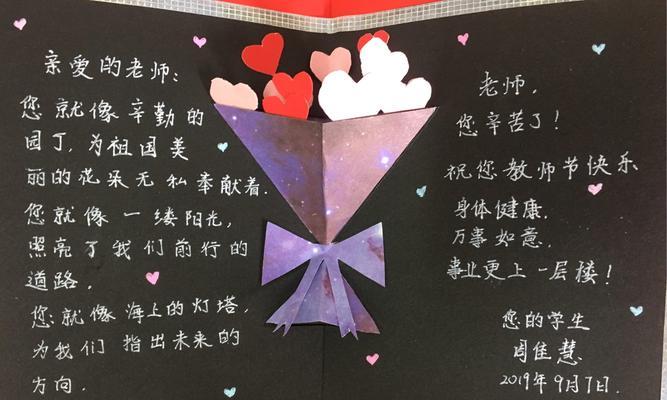 亲爱的老师:
您就像辛勤的
园丁,为祖国美
丽的花朵无私奉献着.
您就像一缕阳光,
照亮了我们前行的
道路.
您就像海上的灯塔,
为我们指出未来的
方向.
老师,
您辛苦了!
祝您教师节快乐
身体健康.
万事如意.
事业更上一层楼!
您的学生
周佳慧
2019年9月7日.